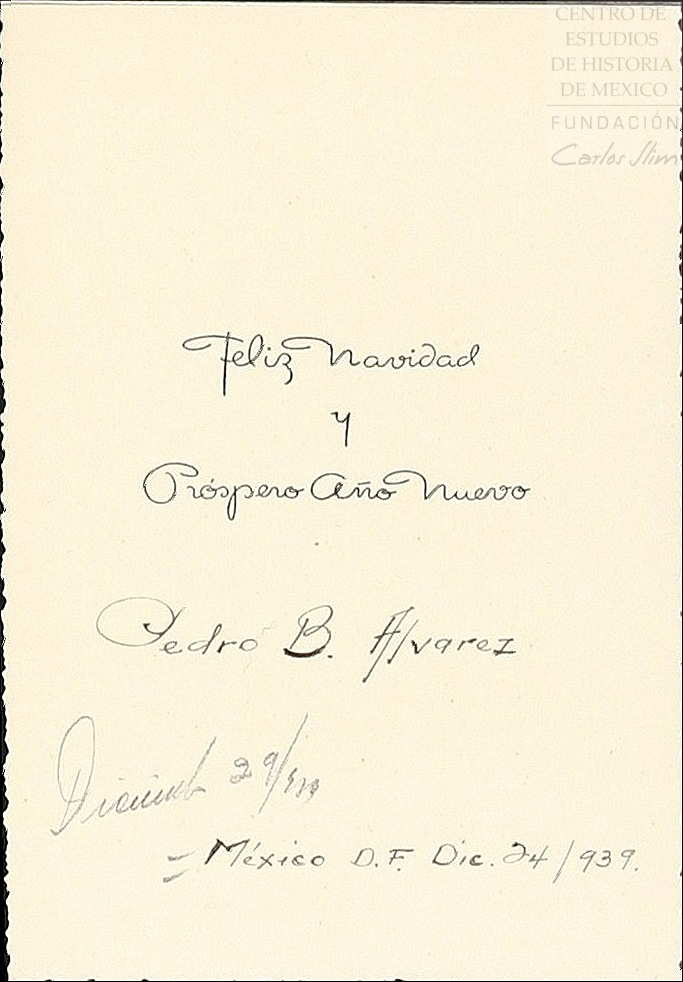 CENTRO DE
ESTUDIOS
DE HISTORIA
DE MEXICO
FUNDACIÓN
Carlos Slim
Feliz Navidad
y
Próspero Año Nuevo
Pedro B. Alvarez
29/
México D.F. Dic. 24/939.